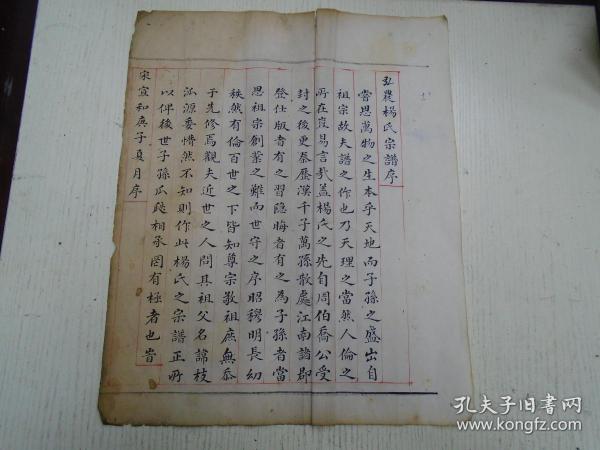 弘農楊氏宗譜序
嘗思萬物之生本乎天地而子孫之盛出自
祖宗故夫譜之作也乃天理之當然人倫之
所在豈易言哉蓋楊氏之先自周伯喬公受
封之後更秦歷漢千子萬孫散處江南諸郡
登仕版者有之習隐晦者有之為子孫者當
思祖宗創業之難而世守之序昭穆明長幼
秩然有倫百世之下皆知尊宗敬祖庶無忝
于先修焉觀夫近世之人問其祖父名諱枝
派源委懵然不知則作此楊氏之宗譜正所
以俾後世子孫瓜瓞相承罔有極者也旹
宋宣和庚子夏月序
孔夫子旧书网
www.kongfz.com